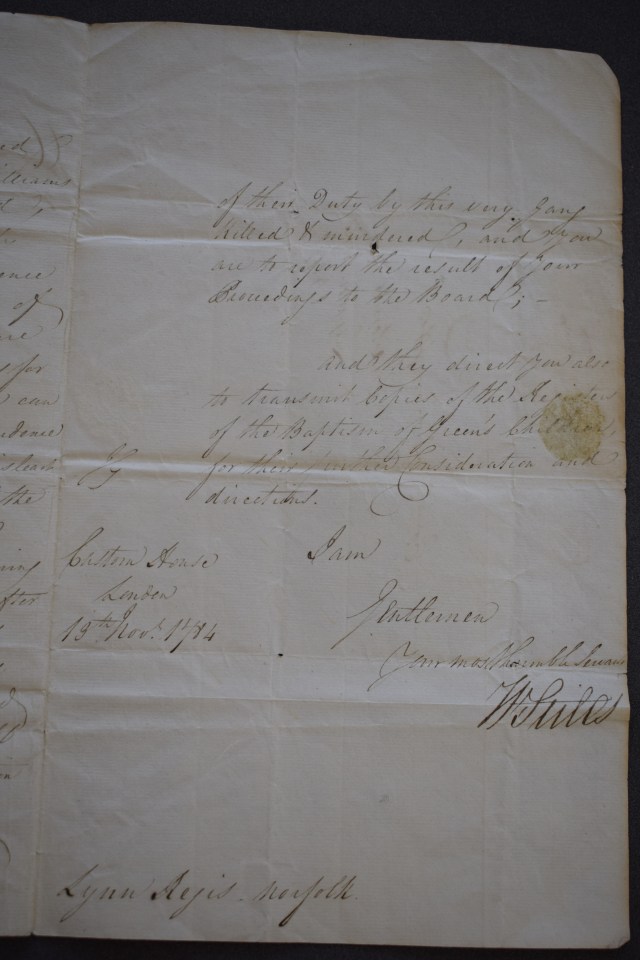 of their Duty by this very Gang
Killed & murdered, and You
are to report the result of Your
Proceedings to the Board; -
And they direct You also
to transmit Copies of the Registers
of the Baptism of Green's Children,
for their further Consideration and
directions.
I am
Gentlemen
Your most humble Servant
W Stiles
Custom House
London
13th Novr. 1784
Lynn Regis. Norfolk.
ed
illiams
ence
of
for
can
idence
the
ing
after